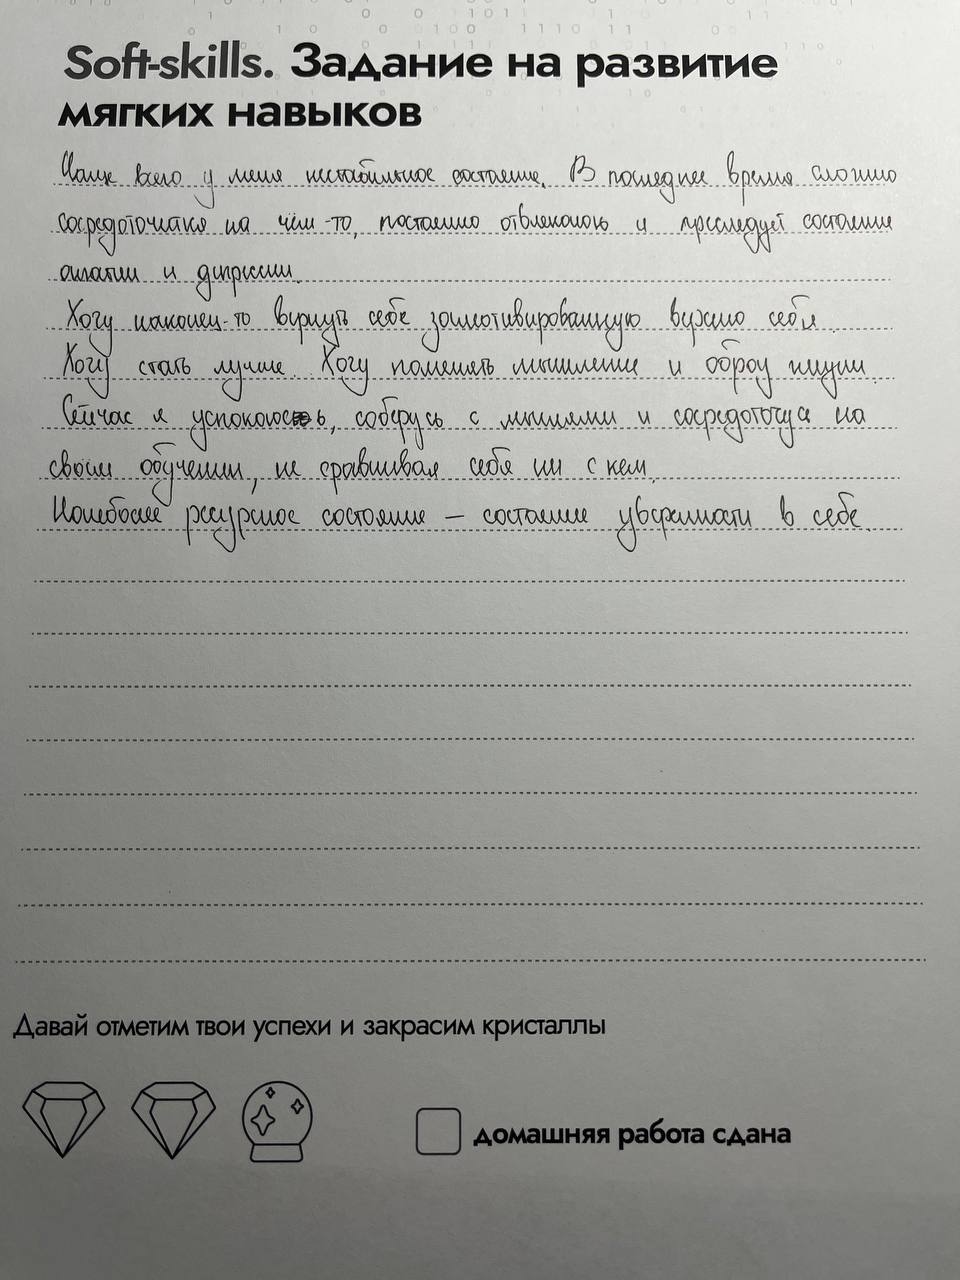 Soft-skills. Задание на развитие
мягких навыков
Чаще всего у меня нестабильное состояние. В последнее время сложно
сосредоточиться на чём-то, постоянно отвлекаюсь и преследует состояние
апатии и депрессии.
Хочу наконец-то вернуть себе замотивированную версию себя.
Хочу стать лучше. Хочу поменять мышление и образ жизни.
Сейчас я успокоюсь, соберусь с мыслями и сосредоточусь на
своём обучении, не сравнивая себя ни с кем.
Наиболее ресурсное состояние — состояние уверенности в себе.
Давай отметим твои успехи и закрасим кристаллы
домашняя работа сдана